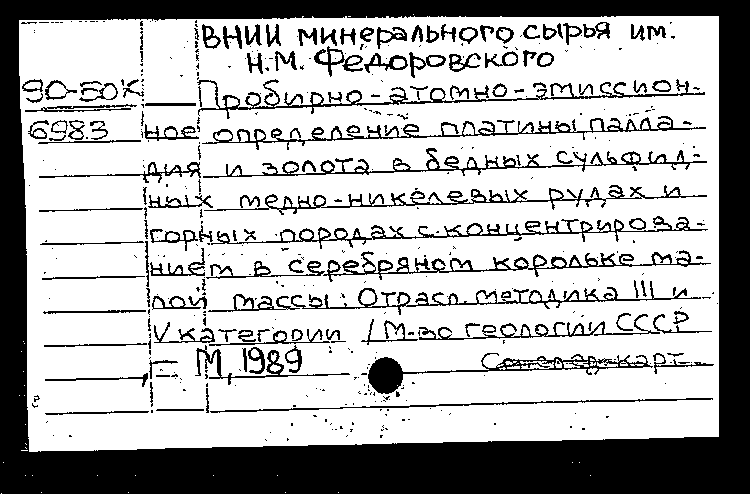 ВНИИ минерального сырья им.
Н.М. Федоровского
90-50К Пробирно-атомно-эмиссион-
6983 ное определение платины, палла-
дия и золота в бедных сульфид-
ных медно-никелевых рудах и
горных породах с концентрирова-
нием в серебряном корольке ма-
лой массы: Отрасл. методика III и
V категории / М-во геологии СССР
– М, 1989 карт.